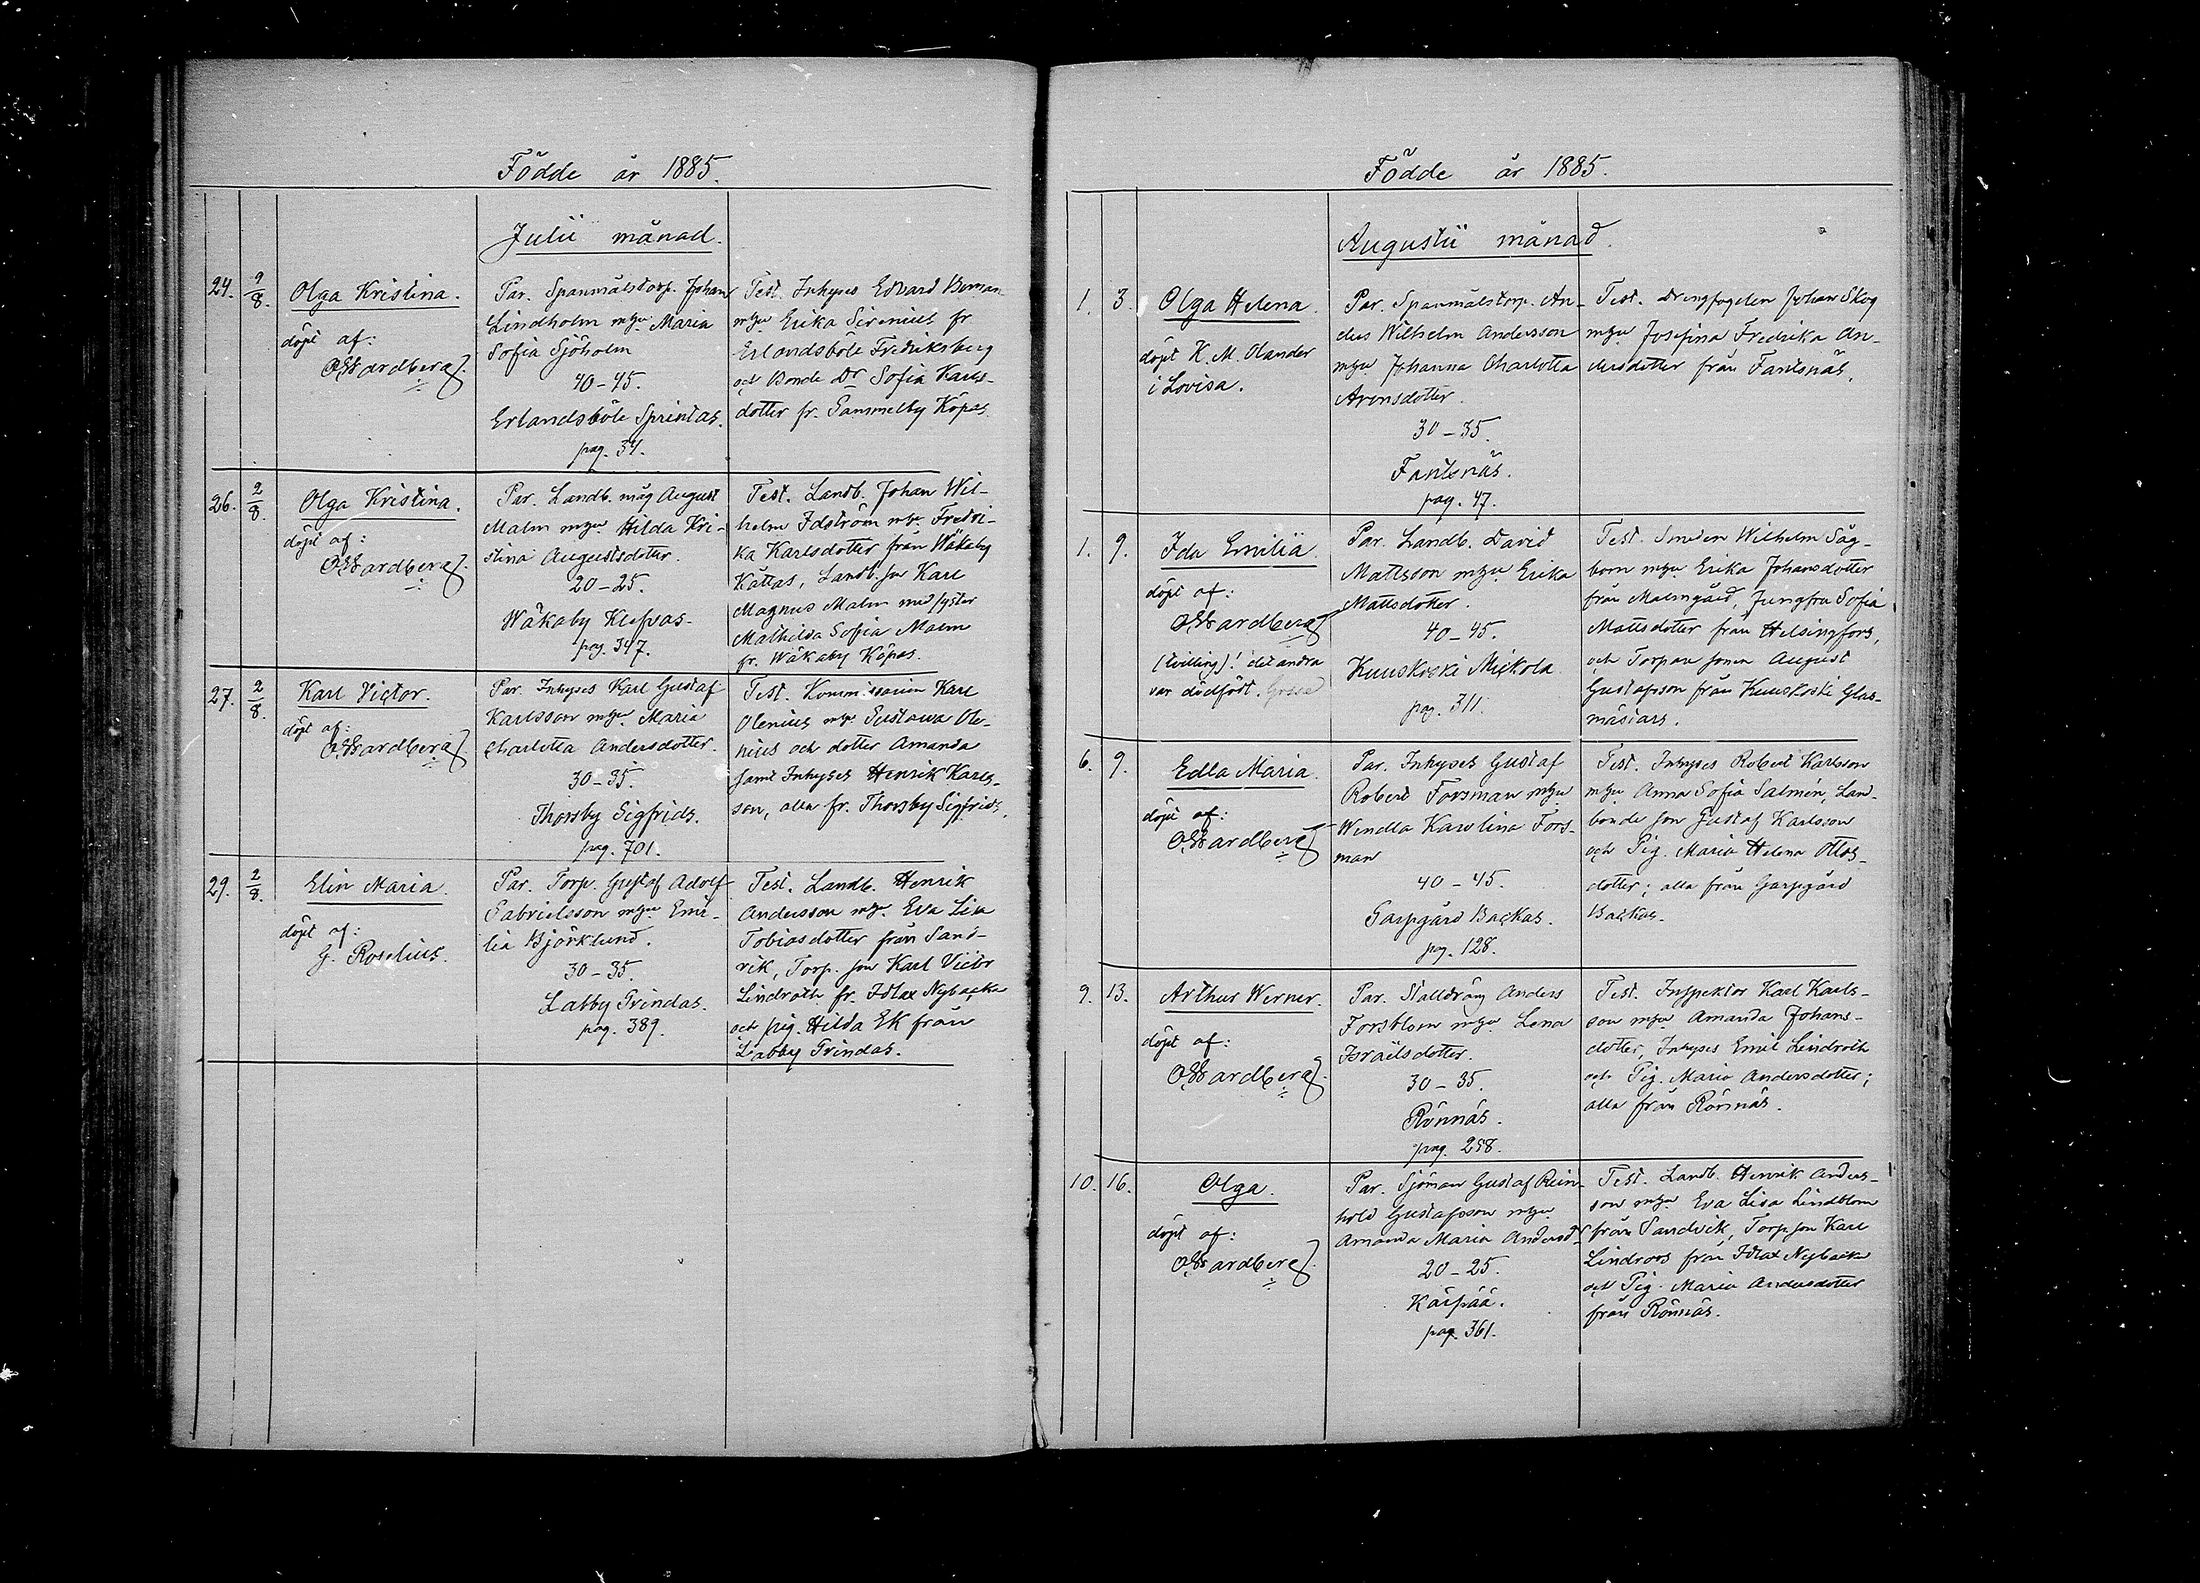 Födde år 1885.
Julii månad.
24. 9/8. Olga Kristina.
döpt af:
Par. Spanmålstorp. Johan
Lindholm m hu Maria
Sofia Sjöholm
40-45.
Erlandsböle Sprintas.
pag. 34.
Test. Inhyses Edvard Boman
m hu Erika Sirenius fr
Erlandsböle Fredriksberg
och Bonde Dr Sofia Karls-
dotter fr. Sammelby Köpas
26. 2/8. Olga Kristina.
döpt af:
Par. Landb. måg August
Malm m hu Hilda Kri-
stina Augustsdotter.
20-25.
Wåkaby Klefvas.
pag. 347.
Test. Landb. Johan Wil-
helm Idström m hu Fredri-
ka Karlsdotter från Wåkaby
Kättas, Landb. son Karl
Magnus Malm med syster
Mathilda Sofia Malm
fr. Wåkaby Köpas.
27. 2/8. Karl Victor.
döpt af:
Par. Inhyses Karl Gustaf
Karlsson m hu Maria
Charlotta Andersdotter.
30-35.
Thorsby Sigfrids.
pag. 701.
Test. Kommissarien Karl
Olenius m hu Gustawa Ole-
nius och dotter Amanda
samt Inhyses Henrik Karls-
son, alla fr. Thorsby Sigfrids.
29. 2/8. Elin Maria.
döpt af:
G. Roselius.
Par. Torp. Gustaf Adolf
Gabrielsson m hu Emi-
lia Björklund.
30-35.
Labby Trindas.
pag. 389.
Test. Landb. Henrik
Andersson m hu Eva Lisa
Tobiasdotter från Sand-
vik, Torp. son Karl Victor
Lindroth fr. Idlax Nybacka
och pig. Hilda Ek från
Labby Trindas.
Födde år 1885.
Augustii månad.
1. 3. Olga Helena.
döpt K. M. Olander
i Lovisa.
Par. Spanmålstorp. An-
ders Wilhelm Andersson
m hu Johanna Charlotta
Aronsdotter.
30-35.
Fantsnäs.
pag. 47.
Test. Drengfogden Johan Skog
m hu Josefina Fredrika An-
dersdotter från Fantsnäs.
1. 9. Ida Emilia.
döpt af:
(tvilling)! det andra
var dödfödt. Gosse
Par. Landb. David
Mattsson m hu Erika
Mattsdotter.
40-45.
Kuuskoski Mickola
pag. 311.
Test. Smeden Wilhelm Såg-
bom m hu Erika Johansdotter
från Malmgård, Jungfru Sofia
Mattsdotter från Helsingfors,
och Torpare sonen August
Gustafsson från Kuuskoski Glas-
mästars.
6. 9. Edla Maria.
döpt af:
Par. Inhyses Gustaf
Robert Forsman m hu
Wendla Karolina Fors-
man
40-45.
Garpgård Backas.
pag. 128.
Test. Inhyses Robert Karlsson
m hu Anna Sofia Salmén, Land-
bonde son Gustaf Karlsson
och Pig. Maria Helena Ottos-
dotter; alla från Garpgård
Backas.
9. 13. Arthur Werner.
döpt af:
Par. Stalldräng Anders
Forsblom m hu Lena
Israelsdotter.
30-35.
Rönnäs.
pag. 258.
Test. Inspektor Karl Karls-
son m hu Amanda Johans-
dotter, Inhyses Emil Lindroth
och Pig. Maria Andersdotter;
alla från Rönnäs.
10. 16. Olga.
döpt af:
Par. Sjöman Gustaf Rein-
hold Gustafsson m hu
Amanda Maria Andersd.
20-25.
Käcpää.
pag. 361.
Test. Landb. Henrik Anders-
son m hu Eva Lisa Lindblom
från Sandvik, Torp. son Karl
Lindroos från Idlax Nybacka
och Pig. Maria Andersdotter
från Rönnäs.